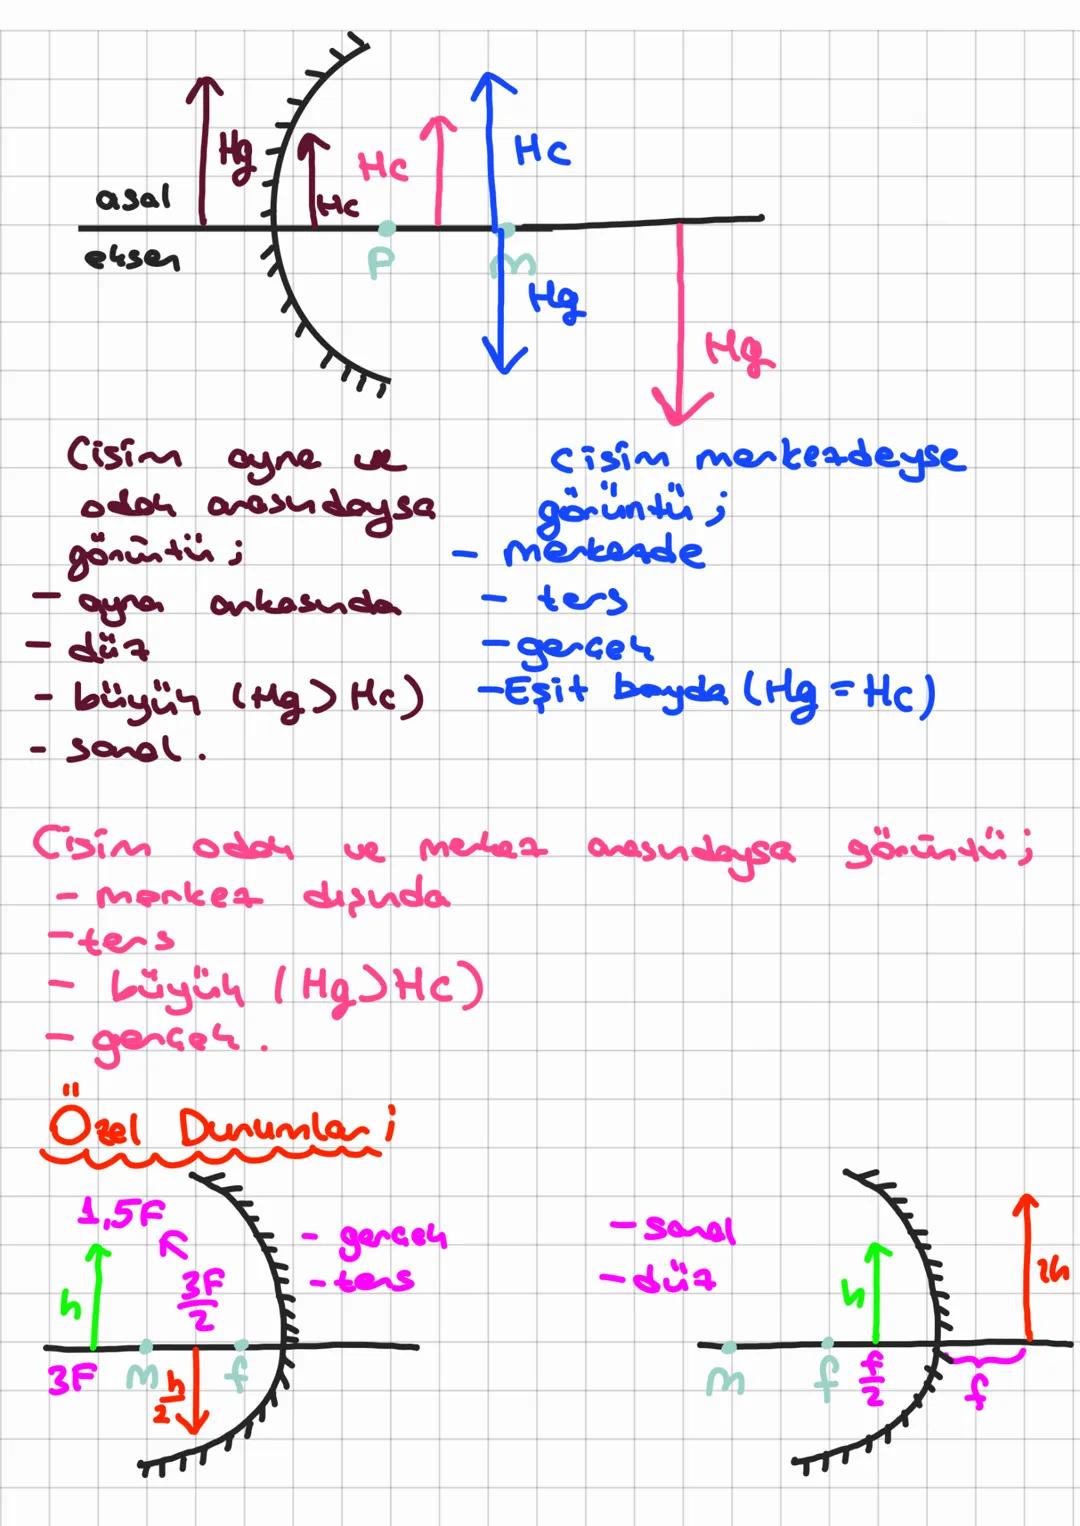 Hg
Hc
Hc
Hc
asal
eksen
F
m
Hg
Hg
Cisim ayna ve
odak arasındaysa
görüntü;
- ayna arkasında
- düz
- büyük (Hg > Hc)
- sanal.
cisim merkezdeyse
görüntü;
- merkezde
- ters
- gerçek
- Eşit boyda (Hg = Hc)
Cisim odak ve merkez arasındaysa görüntü;
- merkez dışında
- ters
- büyük (Hg > Hc)
- gerçek.
Özel Durumlar;
1,5F
3F/2
h
3F
m
h/2
f
- gerçek
- ters
- sanal
- düz
h
2h
m
f
f/2
f